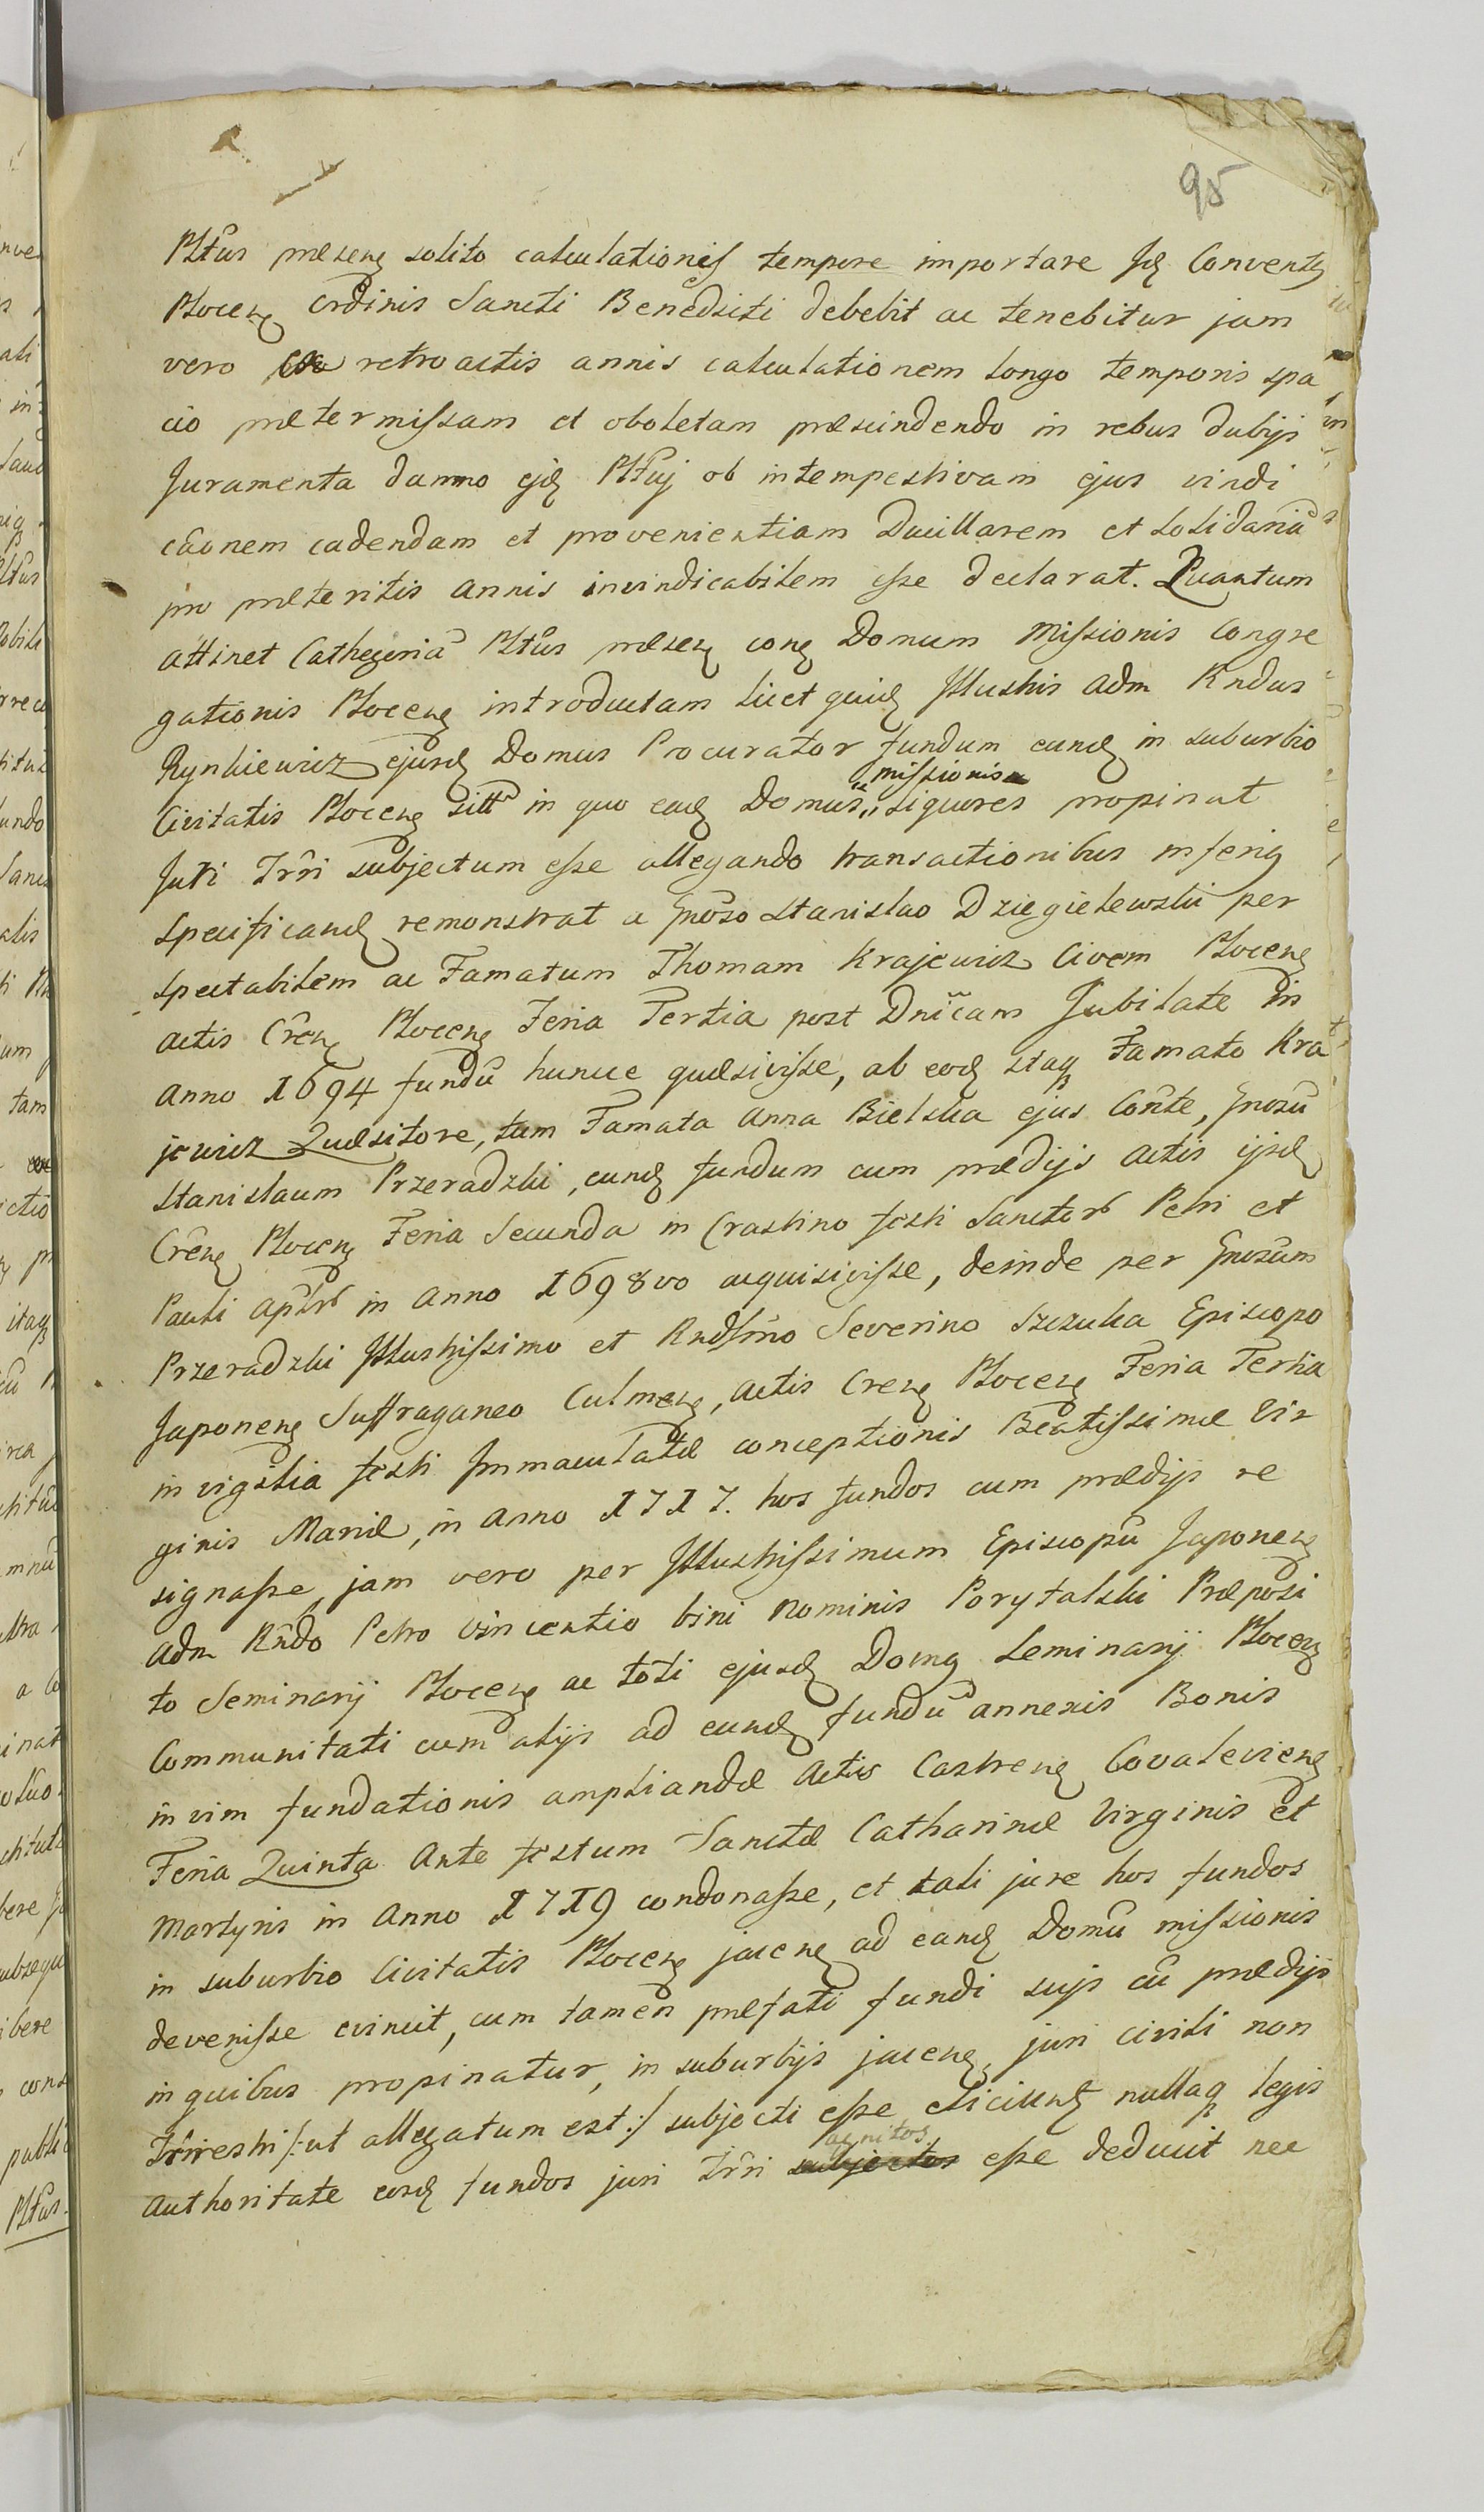 95
Pltûs præsenȩ solito calculationis tempore importare Jdȩ Conventȩ
Plocenȩ Ordinis Sancti Benedicti debebit ac tenebitur jam
vero retroactis annis calculationem longo temporis spa
cio prætermissam et oboletam præscindendo in rebus dubijs
Juramenta damno ejdȩ Pltûj ob intempestivam ejus vindi
cãonem cadendam et provenientiam Ducillarem et Solidariã
pro præteritis annis invindicabilem esse declarat. Quantum
attinet Cathegoriã Pltûs præsenȩ conȩ Domum Missionis Congre
gationis Plocenȩ introductam licet quidȩ Jllustris Adm Rndus
Rynkiewicz ejusdȩ Domus Procurator fundum eundȩ in suburbio
Civitatis Plocenȩ sittũ in quo eadȩ Domus missionis liquores propinat
Juri Trri subjectum esse allegando transactionibus inferiȩ
specificandȩ remonstrat a Gnôso Stanislao Dziegielewski per
spectabilem ac Famatum Thomam Krajewicz Civem Plocenȩ
actis Crênȩ Plocenȩ Feria Tertia post Dnîcam Jubilate in
Anno 1694 fundũ huncce quæsivisse, ab eodȩ itaqȝ Famato Kra
jewicz Quæsitore, tum Famata Anna Bielska ejus Conte, Gnosũ
Stanislaum Przeradzki, eundȩ fundum cum prædijs actis ijsdȩ
Crênȩ Plocenȩ Feria Secunda in Crastino festi Sanctorũ Petri et
Pauli Aplrũ in Anno 1698vo acquisivisse, deinde per Gnosum
Przeradzki Jllustrissimo et Rndsmo Severino Szczuka Episcopo
Japonenȩ Suffraganeo Culmenȩ, actis Crenȩ Plocenȩ Feria Tertia
in vigilia festi Jmmaculatæ conceptionis Beatissimæ Vir
ginis Mariæ, in Anno 1717. hos fundos cum prædijs re
signasse, jam vero per Jllustrissimum Episcopũ Japonenȩ
adm Rndo Petro Vincentio bini Nominis Porytalski Præposi
to Seminarij Plocenȩ ac toti ejusdȩ Domȩ Seminarij Plocenȩ
Communitati cum alijs ad eundȩ fundũ annexis Bonis
in vim fundationis ampliandæ Actis Castrenȩ Covalevienȩ
Feria Quinta Ante festum Sanctæ Catharinæ Virginis et
Martyris in Anno 1719 condonasse, et tali jure hos fundos
in suburbio Civitatis Plocenȩ jacenȩ ad eandȩ Domũ missionis
devenisse evincit, cum tamen præfati fundi sujs cũ prædijs
in quibus propinatur, in suburbijs jacenȩ, juri civili non
Trrirestri /: ut allegatum est :/ subjecti esse eliciunȩ nullaqȝ legis
authoritate eosdȩ fundos juri Trri subjectos agnitos esse deducit nec